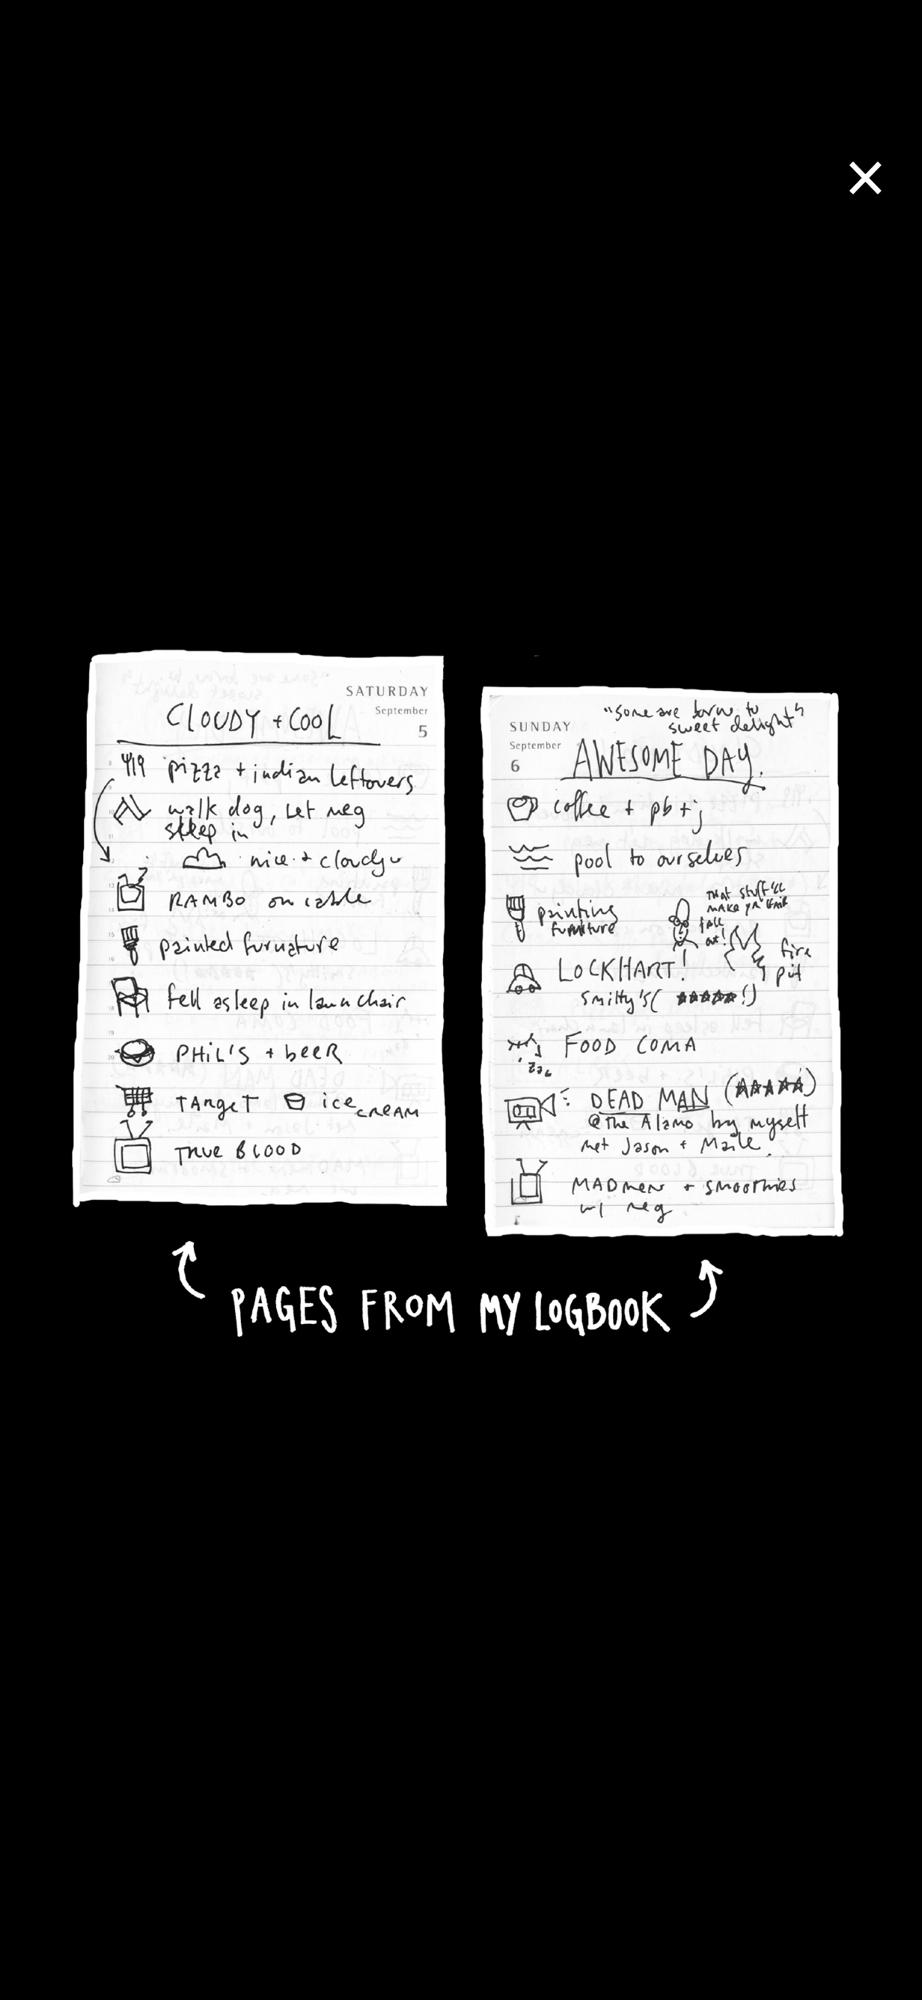 SATURDAY
September
5
CLOUDY + COOL
pizza + indian leftovers
walk dog, let meg
sleep in
nice + cloudy
RAMBO on cable
painted furnature
fell asleep in lawn chair
PHIL'S + beeR
TARgeT ice cREAM
TRUE BLOOD
"some are born to
sweet delight"
SUNDAY
September
6
AWESOME DAY.
coffee + pb + j
pool to ourselves
painting
furniture
THAT STUFF'LL
MAKE YR HAIR
fall
out!
fire
pit
LOCKHART!
Smitty's ( ★★★★★!)
FOOD COMA
zzz
DEAD MAN (★★★★★)
@ The Alamo by myself
met Jason +
MADmen + smoothies
w/ meg
PAGES FROM MY LOGBOOK